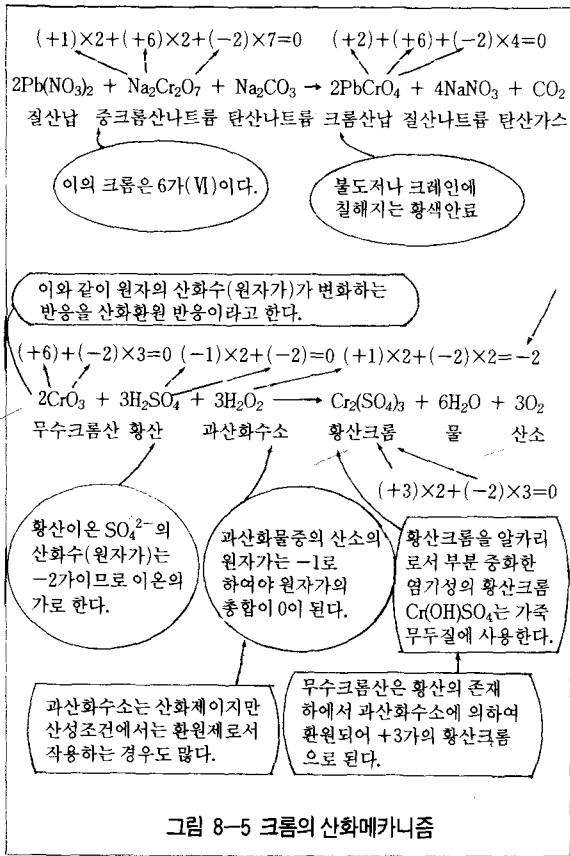 (+1)×2+(+6)×2+(−2)×7=0
(+2)+(+6)+(−2)×4=0
2Pb(NO₃)₂ + Na₂Cr₂O₇ + Na₂CO₃ → 2PbCrO₄ + 4NaNO₃ + CO₂
질산납 중크롬산나트륨 탄산나트륨 크롬산납 질산나트륨 탄산가스
이의 크롬은 6가(Ⅵ)이다.
불도저나 크레인에
칠해지는 황색안료
이와 같이 원자의 산화수(원자가)가 변화하는
반응을 산화환원 반응이라고 한다.
(+6)+(−2)×3=0 (−1)×2+(−2)=0 (+1)×2+(−2)×2=−2
2CrO₃ + 3H₂SO₄ + 3H₂O₂ → Cr₂(SO₄)₃ + 6H₂O + 3O₂
무수크롬산 황산 과산화수소 황산크롬 물 산소
(+3)×2+(−2)×3=0
황산이온 SO₄²⁻의
산화수(원자가)는
−2가이므로 이온의
가로 한다.
과산화물중의 산소의
원자가는 −1로
하여야 원자가의
총합이 0이 된다.
황산크롬을 알카리
로서 부분 중화한
염기성의 황산크롬
Cr(OH)SO₄는 가죽
무두질에 사용한다.
과산화수소는 산화제이지만
산성조건에서는 환원제로서
작용하는 경우도 많다.
무수크롬산은 황산의 존재
하에서 과산화수소에 의하여
환원되어 +3가의 황산크롬
으로 된다.
그림 8—5 크롬의 산화메카니즘